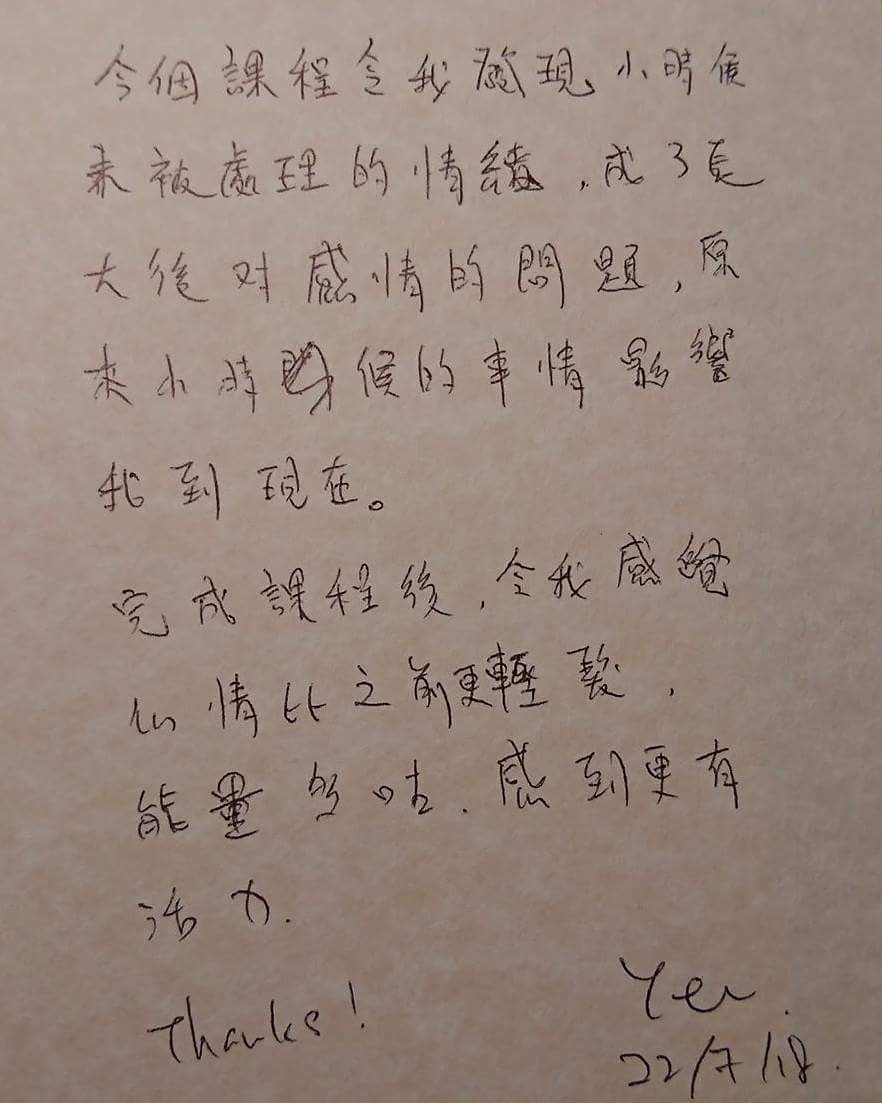 今個課程令我發現小時候
未被處理的情緒,成了長
大後对感情的問題,原
來小時候的事情影響
我到現在。
完成課程後,令我感覺
心情比之前更輕鬆,
能量多咗.感到更有
活力.
Thanks!
22/7/18.